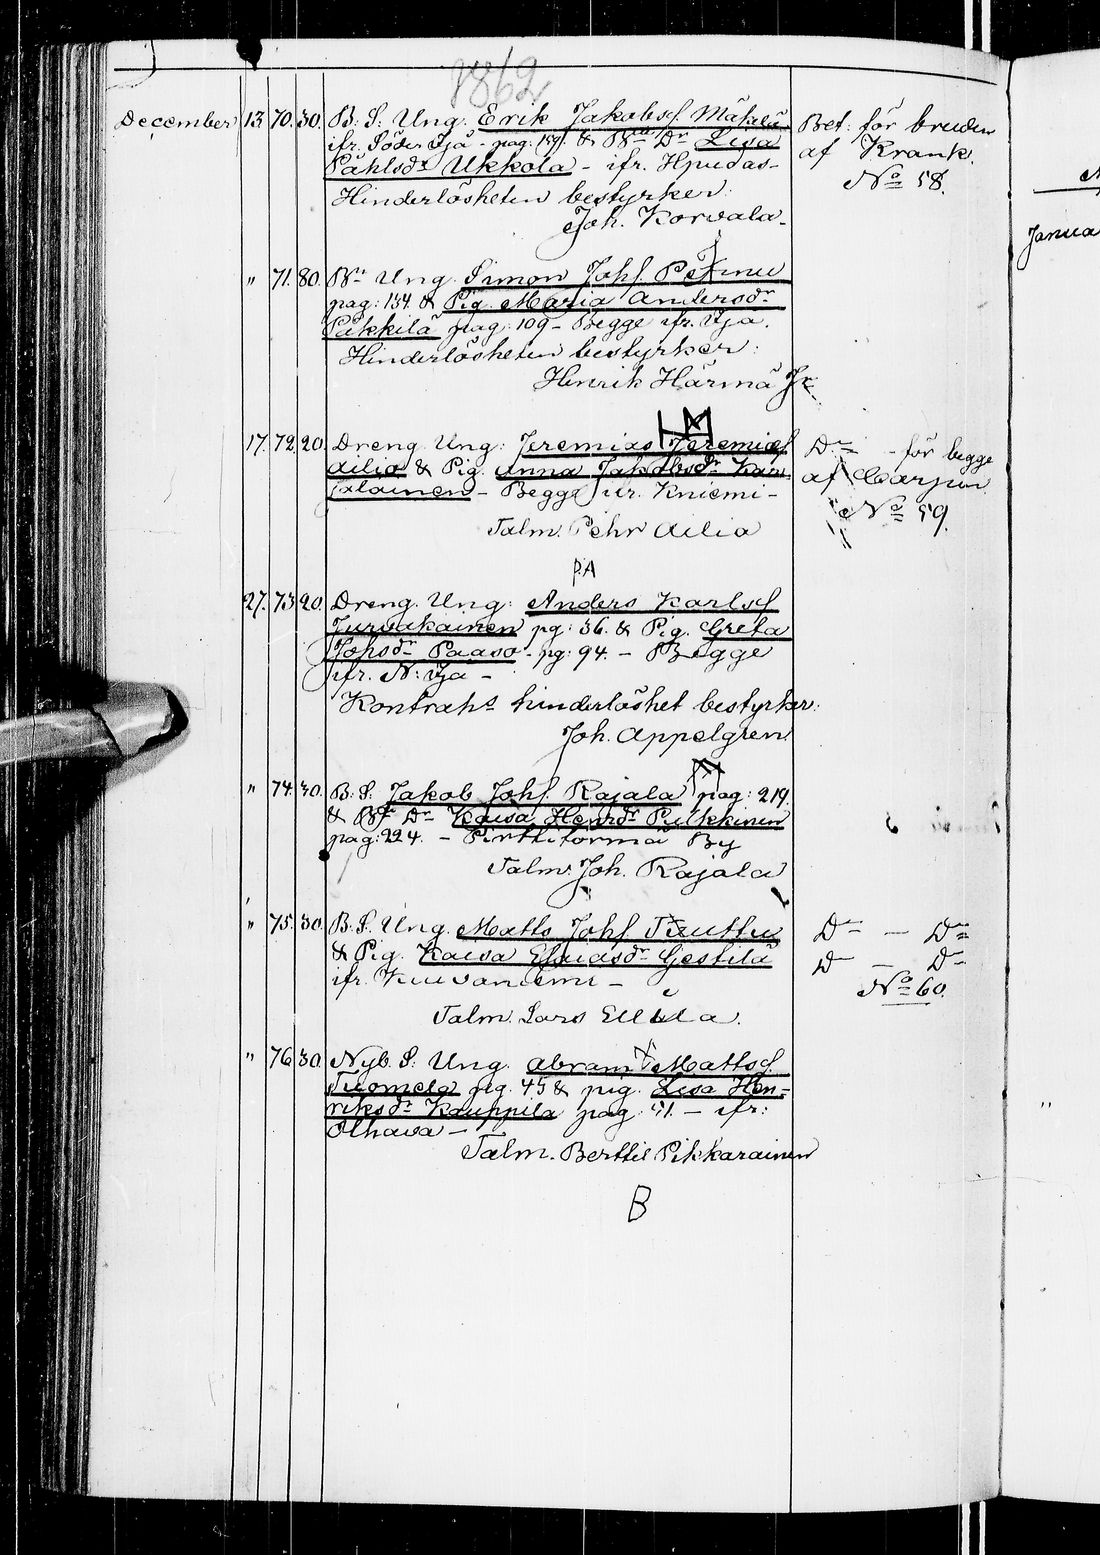 1862
December 13. 70. 30. B: S: Ung. Erik Jakobsf Mäkelä
ifr. Söder Ijä - pag: 157. & Bde Dr Lisa
Påhlsdr Ukkola - ifr. Hpudas-
Hinderlösheten bestyrker:
Joh. Korvala-
Bet: för bruden
af Krank.
No 58.
" 71. 80. Bn Ung. Simon Johsf
pag: 154. & Pig. Maria Andersdr
Pukkila pag: 109 - Begge ifr. Ijä.
Hinderlösheten bestyrker:
Henrik Härmä
17. 72. 20. Dreng Ung: Jeremias Jeremiaesf
Ailio & Pig. Anna Jakobsdr
- Begge ur. Kniemi -
Talm. Pehr Ailio
Do - för begge
af Carpen
No 59.
P.A
27. 73. 20. Dreng. Ung: Anders Karlsf
Jurvakainen pg: 36. & Pig. Greta
Johsdr Paaso - pg: 94. - Begge
ifr. N: Ijä -
Kontrahs hinderlöshet bestyrker:
Joh. Appelgren.
" 74. 30. B: S: Jakob Johsf. Rajala pag: 219.
& Bde Dr Kaisa Henrdr Pulkkinen
pag: 224. - Pirttitörmä By
Talm. Joh. Rajala
" 75. 30. B. S. Ung. Matts Johsf
& Pig. Kaisa Esaiasdr Gestilä
ifr. Kuivaniemi -
Talm. Lars Ellilä.
Do - Do
Do - Do
No 60.
" 76. 30. Nyb. S: Ung. Abram Mattsf.
Tuomela pg. 45 & pig. Lisa Hen-
riksdr Kauppila pag: 51. - ifr:
Olhava -
Talm. Berttil Pikkarainen
B
Janua
"